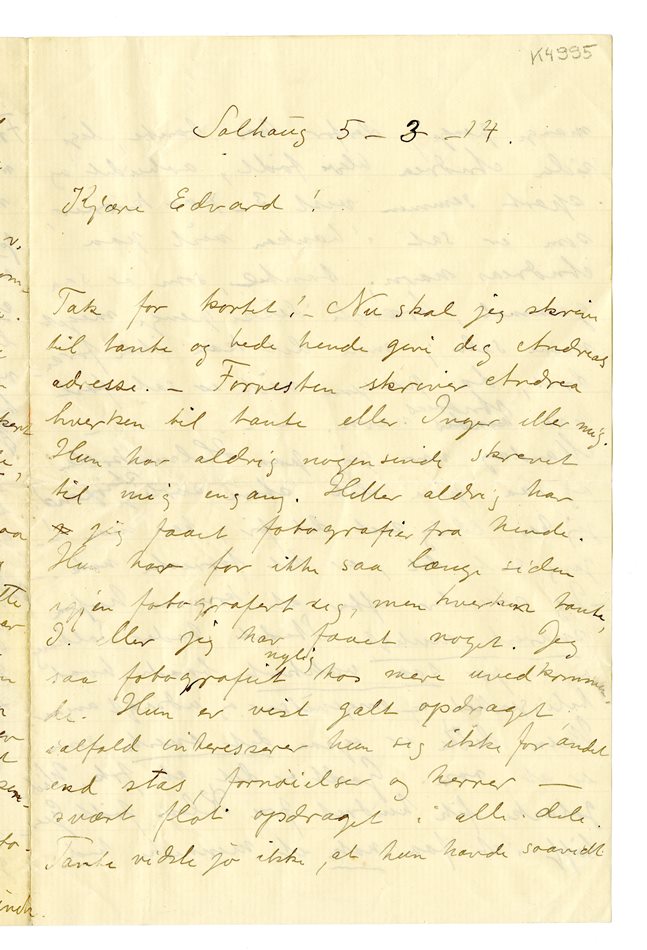 K4995
Solhaug 5 – 3 – 14.
Kjære Edvard!
Tak for kortet! – Nu skal jeg skrive
til tante og bede hende give dig Andreas
adresse. – Forresten skriver Andrea
hverken til tante eller Inger eller mig.
Hun har aldrig nogensinde skrevet
til mig engang. Heller aldrig har
jeg faaet fotografier fra hende.
Hun har for ikke saa længe siden
igjen fotografert sig, men hverken tante,
I. eller jeg har faaet noget. Jeg
nylig
saa fotografiet hos mere uvedkommen-
de. Hun er vist galt opdraget
ialfald interesserer hun sig ikke for andet
end stas, fornøielser og herrer —
svært flot opdraget i alle dele.
Tante vidste jo ikke, at hun havde saavidt